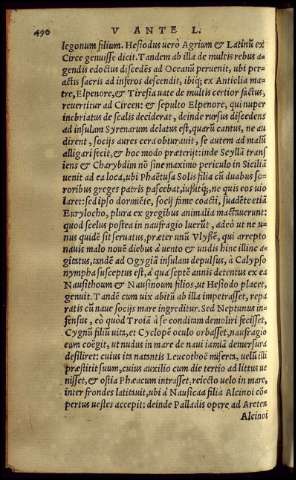 490 V ANTE L.
legonum filium. Hesiodus uerò Agrium & Latinũ ex
Circe genuisse dicit. Tandem ab illa de multis rebus a-
gendis edoctus discedẽs ad Oceanũ peruenit, ubi per-
actis sacris ad inferos descendit, ibiq; ex Anticlia ma-
tre, Elpenore, & Tiresia uate de multis certior factus,
reuertitur ad Circen: & sepulto Elpenore, qui nuper
inebriatus de scalis deciderat, deinde rursus discedens
ad insulam Syrenarum delatus est, quarũ cantus, ne au
dirent, socijs aures cera obturauit, se autem ad malũ
alligari fecit, & hoc modo præterijt: inde Scyllã trans
iens & Charybdim nõ sine maximo periculo in Siciliã
uenit ad ea loca, ubi Phaëtusa Solis filia cũ duabus so-
roribus greges patris pascebat, iussitq;, ne quis eos uio
laret: sed ipso dormiẽte, socij fame coacti, suadẽte etiã
Eurylocho, plura ex gregibus animalia mactauerunt:
quod scelus postea in naufragio luerũt, adeò ut ne u-
nus quidẽ sit seruatus, præter unũ Vlyssẽ, qui arrepto
nauis malo nouẽ diebus à uento & undis hinc illinc a-
gitatus, ixndè ad Ogygiã insulam depulsus, à Calypso
nympha susceptus est, à qua septẽ annis detentus ex ea
Nausithoum & Nausinoum filios, ut Hesiodo placet,
genuit. Tandẽ cum uix abitũ ab illa impetrasset, repa
ratis cũ naue socijs mare ingreditur. Sed Neptunus in-
fensus, eò quod Troiã à se conditam demoliri fecisset,
Cygnũ filiũ uita, et Cyclopẽ oculo orbasset, naufragio
eum coëgit, ut nudus in mare de naui iamiã demersura
desiliret: cuius ita natantis Leucothoë miserta, uelũ illi
præstitit suum, cuius auxilio cum die tertio ad littus ue
nisset, & ostia Phæacum intrasset, reiecto uelo in mare,
inter frondes latitauit, ubi à Nausicaa filia Alcinoi cõ-
pertus uestes accepit: deinde Palladis opere ad Areten
Alcinoi